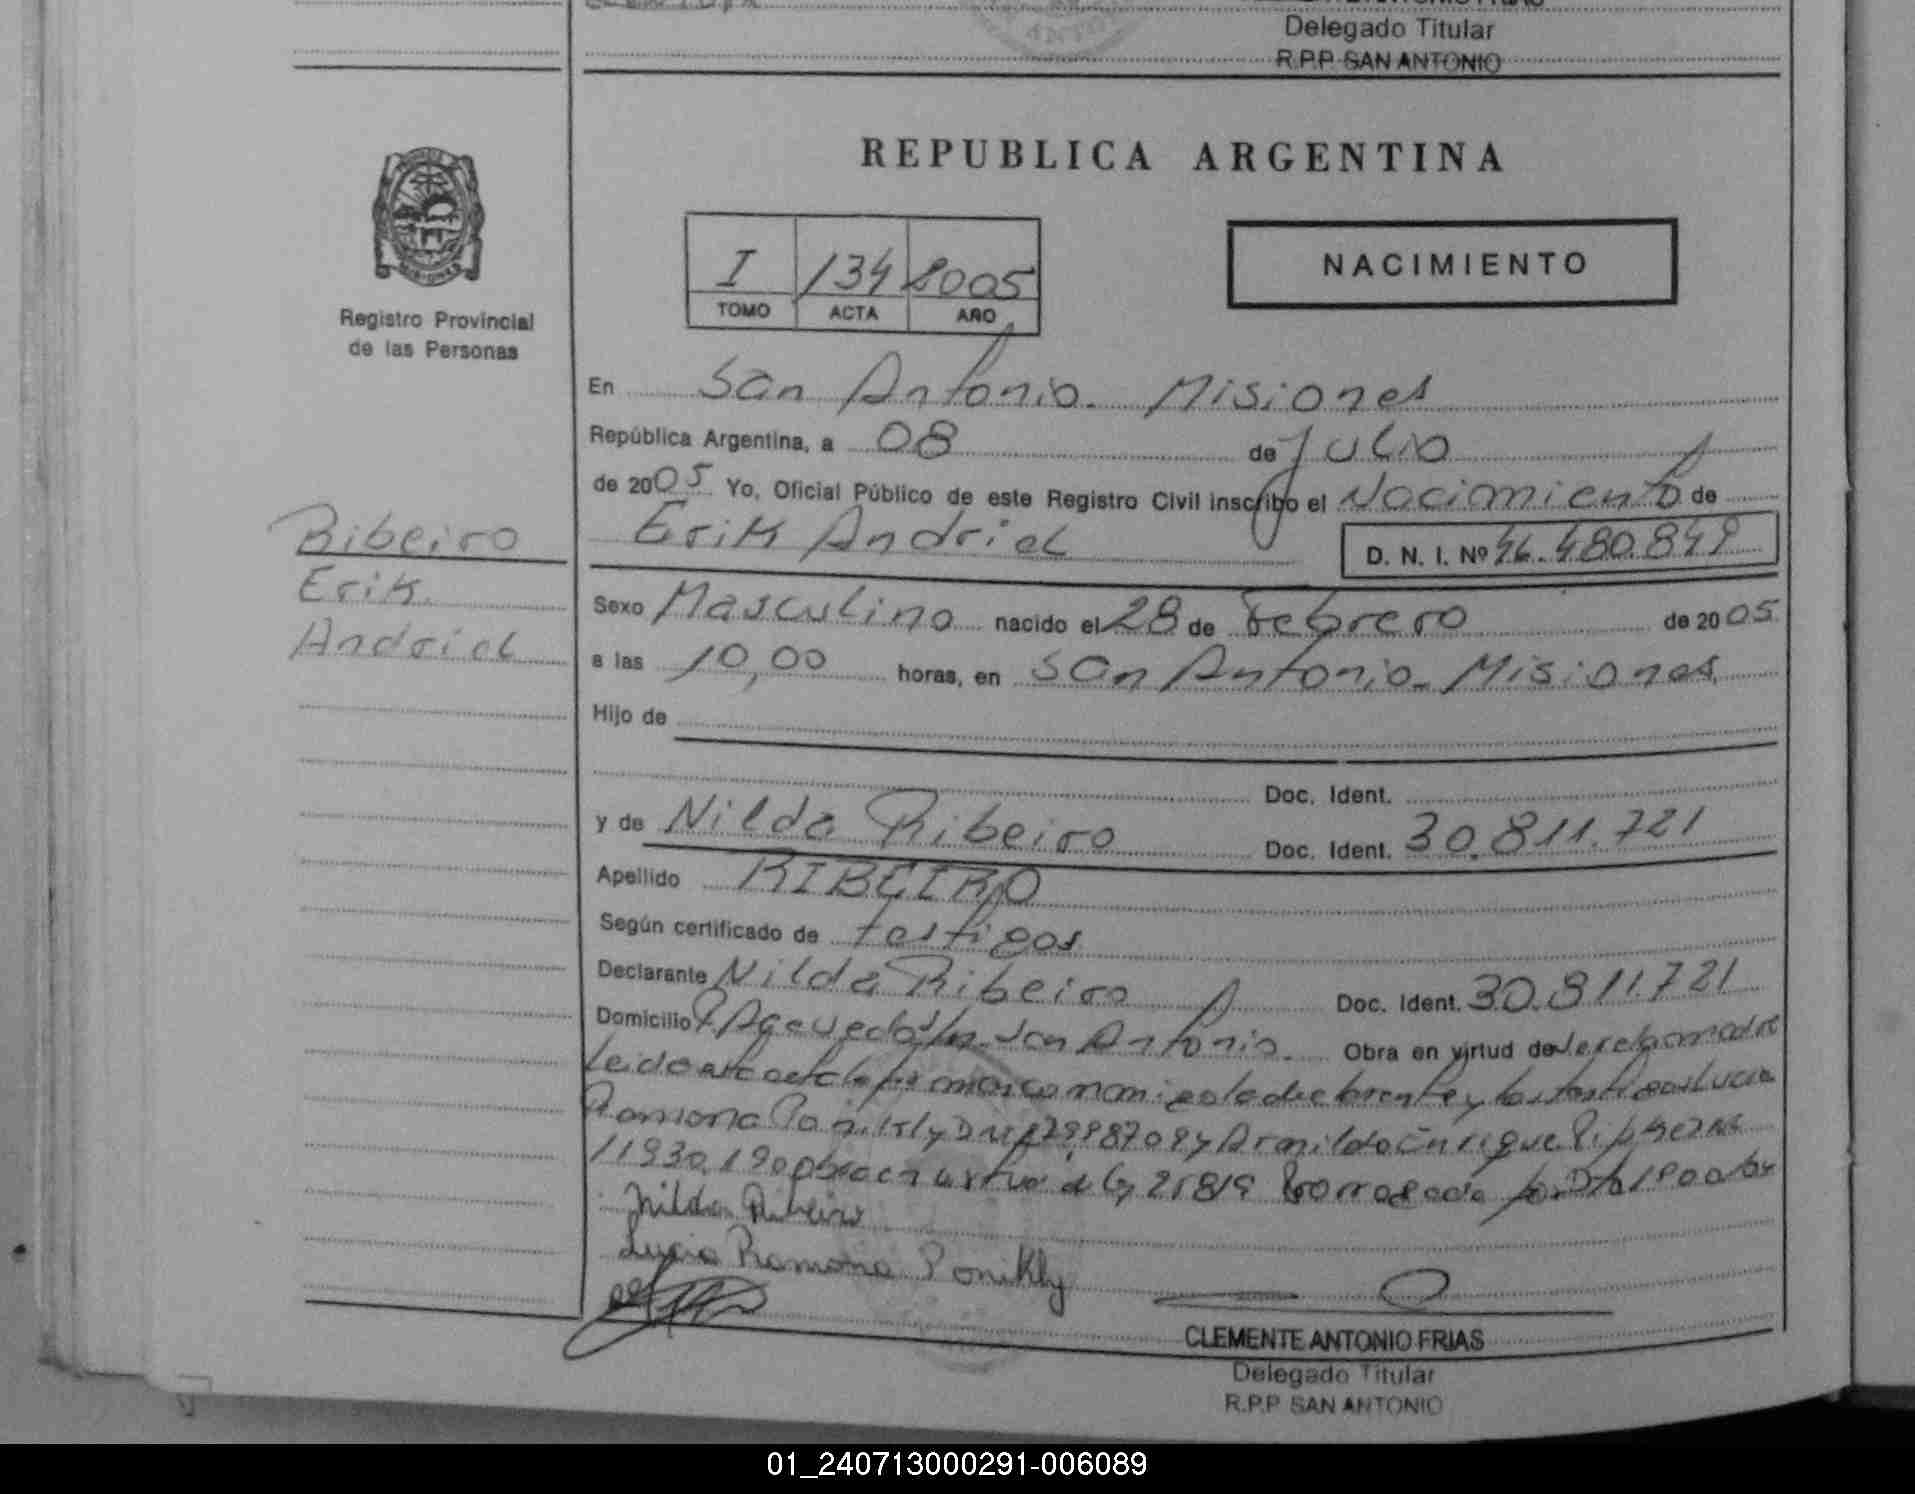 Delegado Titular
R.P.P. SAN ANTONIO
REPUBLICA ARGENTINA
I 134 2005
TOMO ACTA AÑO
NACIMIENTO
Registro Provincial
de las Personas
En San Antonio. Misiones
República Argentina, a 08 de Julio
de 2005 Yo, Oficial Público de este Registro Civil inscribo el Nacimiento de
Erik Andriel D. N. I. Nº 46.480.849
Ribeiro
Erik
Andriel
Sexo Masculino nacido el 28 de Febrero de 2005
a las 10,00 horas, en San Antonio. Misiones
Hijo de
Doc. Ident.
y de Nilda Ribeiro Doc. Ident. 30.811.721
Apellido RIBEIRO
Según certificado de testigos
Declarante Nilda Ribeiro Doc. Ident. 30.811.721
Domicilio P. Acevedo s/n. San Antonio. Obra en virtud de
Leido el acta la declarante y los testigos Lucia
Ramona Ponikly y Armildo Enrique
11930.190 obra en virtud de Ley 25819 Prorrogada por
Nilda Ribeiro
Lucia Ramona Ponikly
CLEMENTE ANTONIO FRIAS
Delegado Titular
R.P.P SAN ANTONIO
01_240713000291-006089